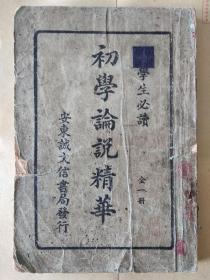 學生必讀
初學論說精華
全一冊
安東誠文信書局發行